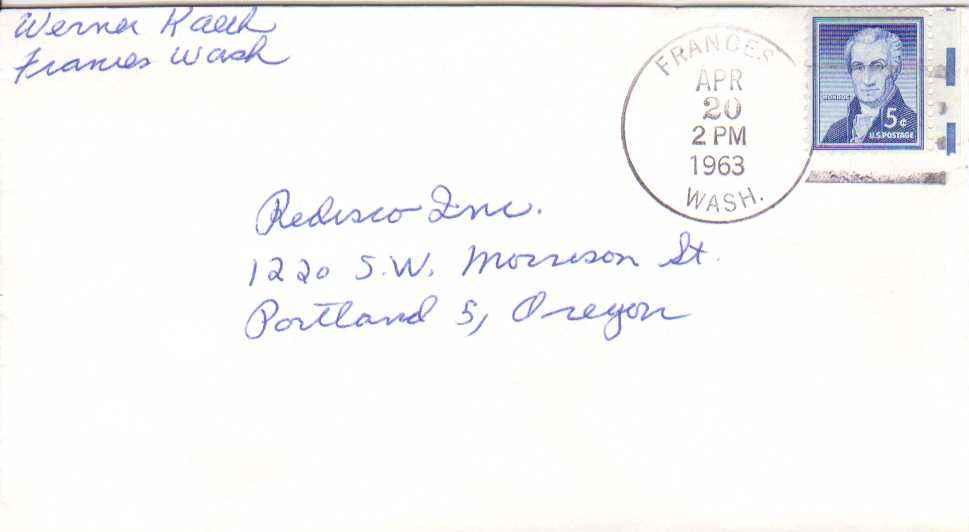 Werner
Frances Wash
FRANCES
APR
20
2 PM
1963
WASH.
MONROE
5¢
U.S. POSTAGE
Redisco Inc.
1220 S.W. Morrison St.
Portland 5, Oregon